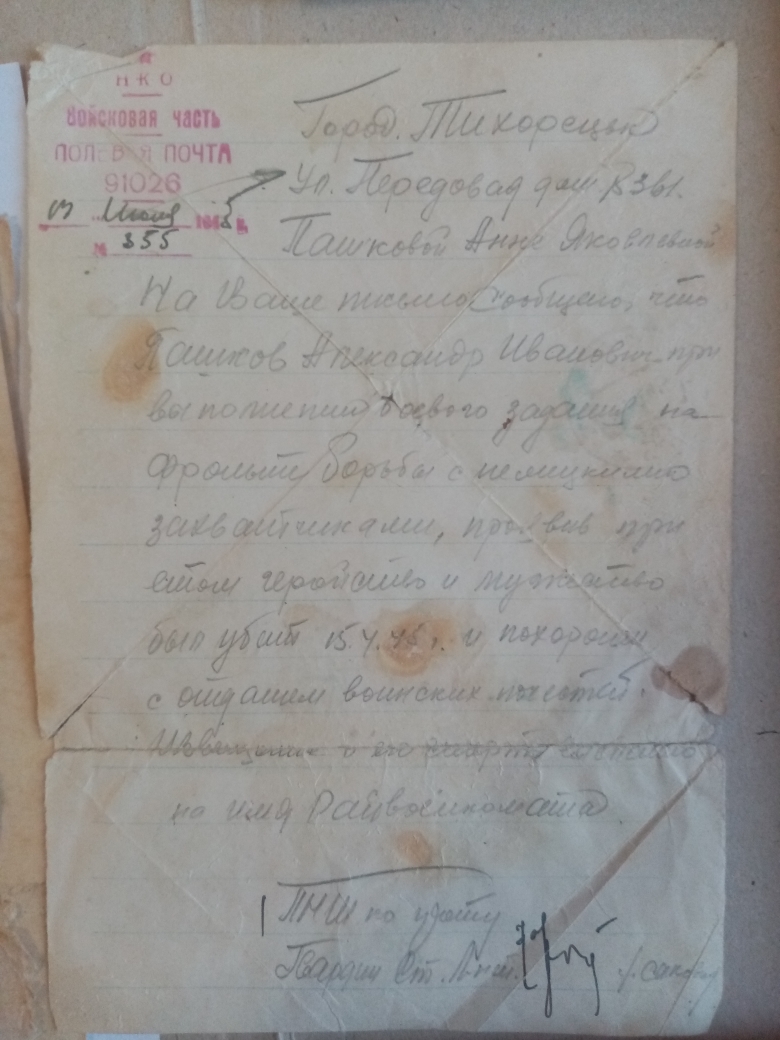 НКО
Войсковая часть
ПОЛЕВАЯ ПОЧТА
91026
Июля 1945 г.
№ 355
Город. Тихорецк
Ул. Передовая дом №
Пашковой Анне Яковлевной
На Ваше письмо сообщаю, что
Пашков Александр Иванович при
выполнении боевого задания на
фронте борьбы с немецкими
захватчиками, проявив при
етом геройство и мужество
был убит 15.4.45 г. и похоронен
с отданием воинских почестей.
Извещение о его смерти
на имя Райвоенкомата
ПНШ по учёту
Гвардии Ст. Л-нт.